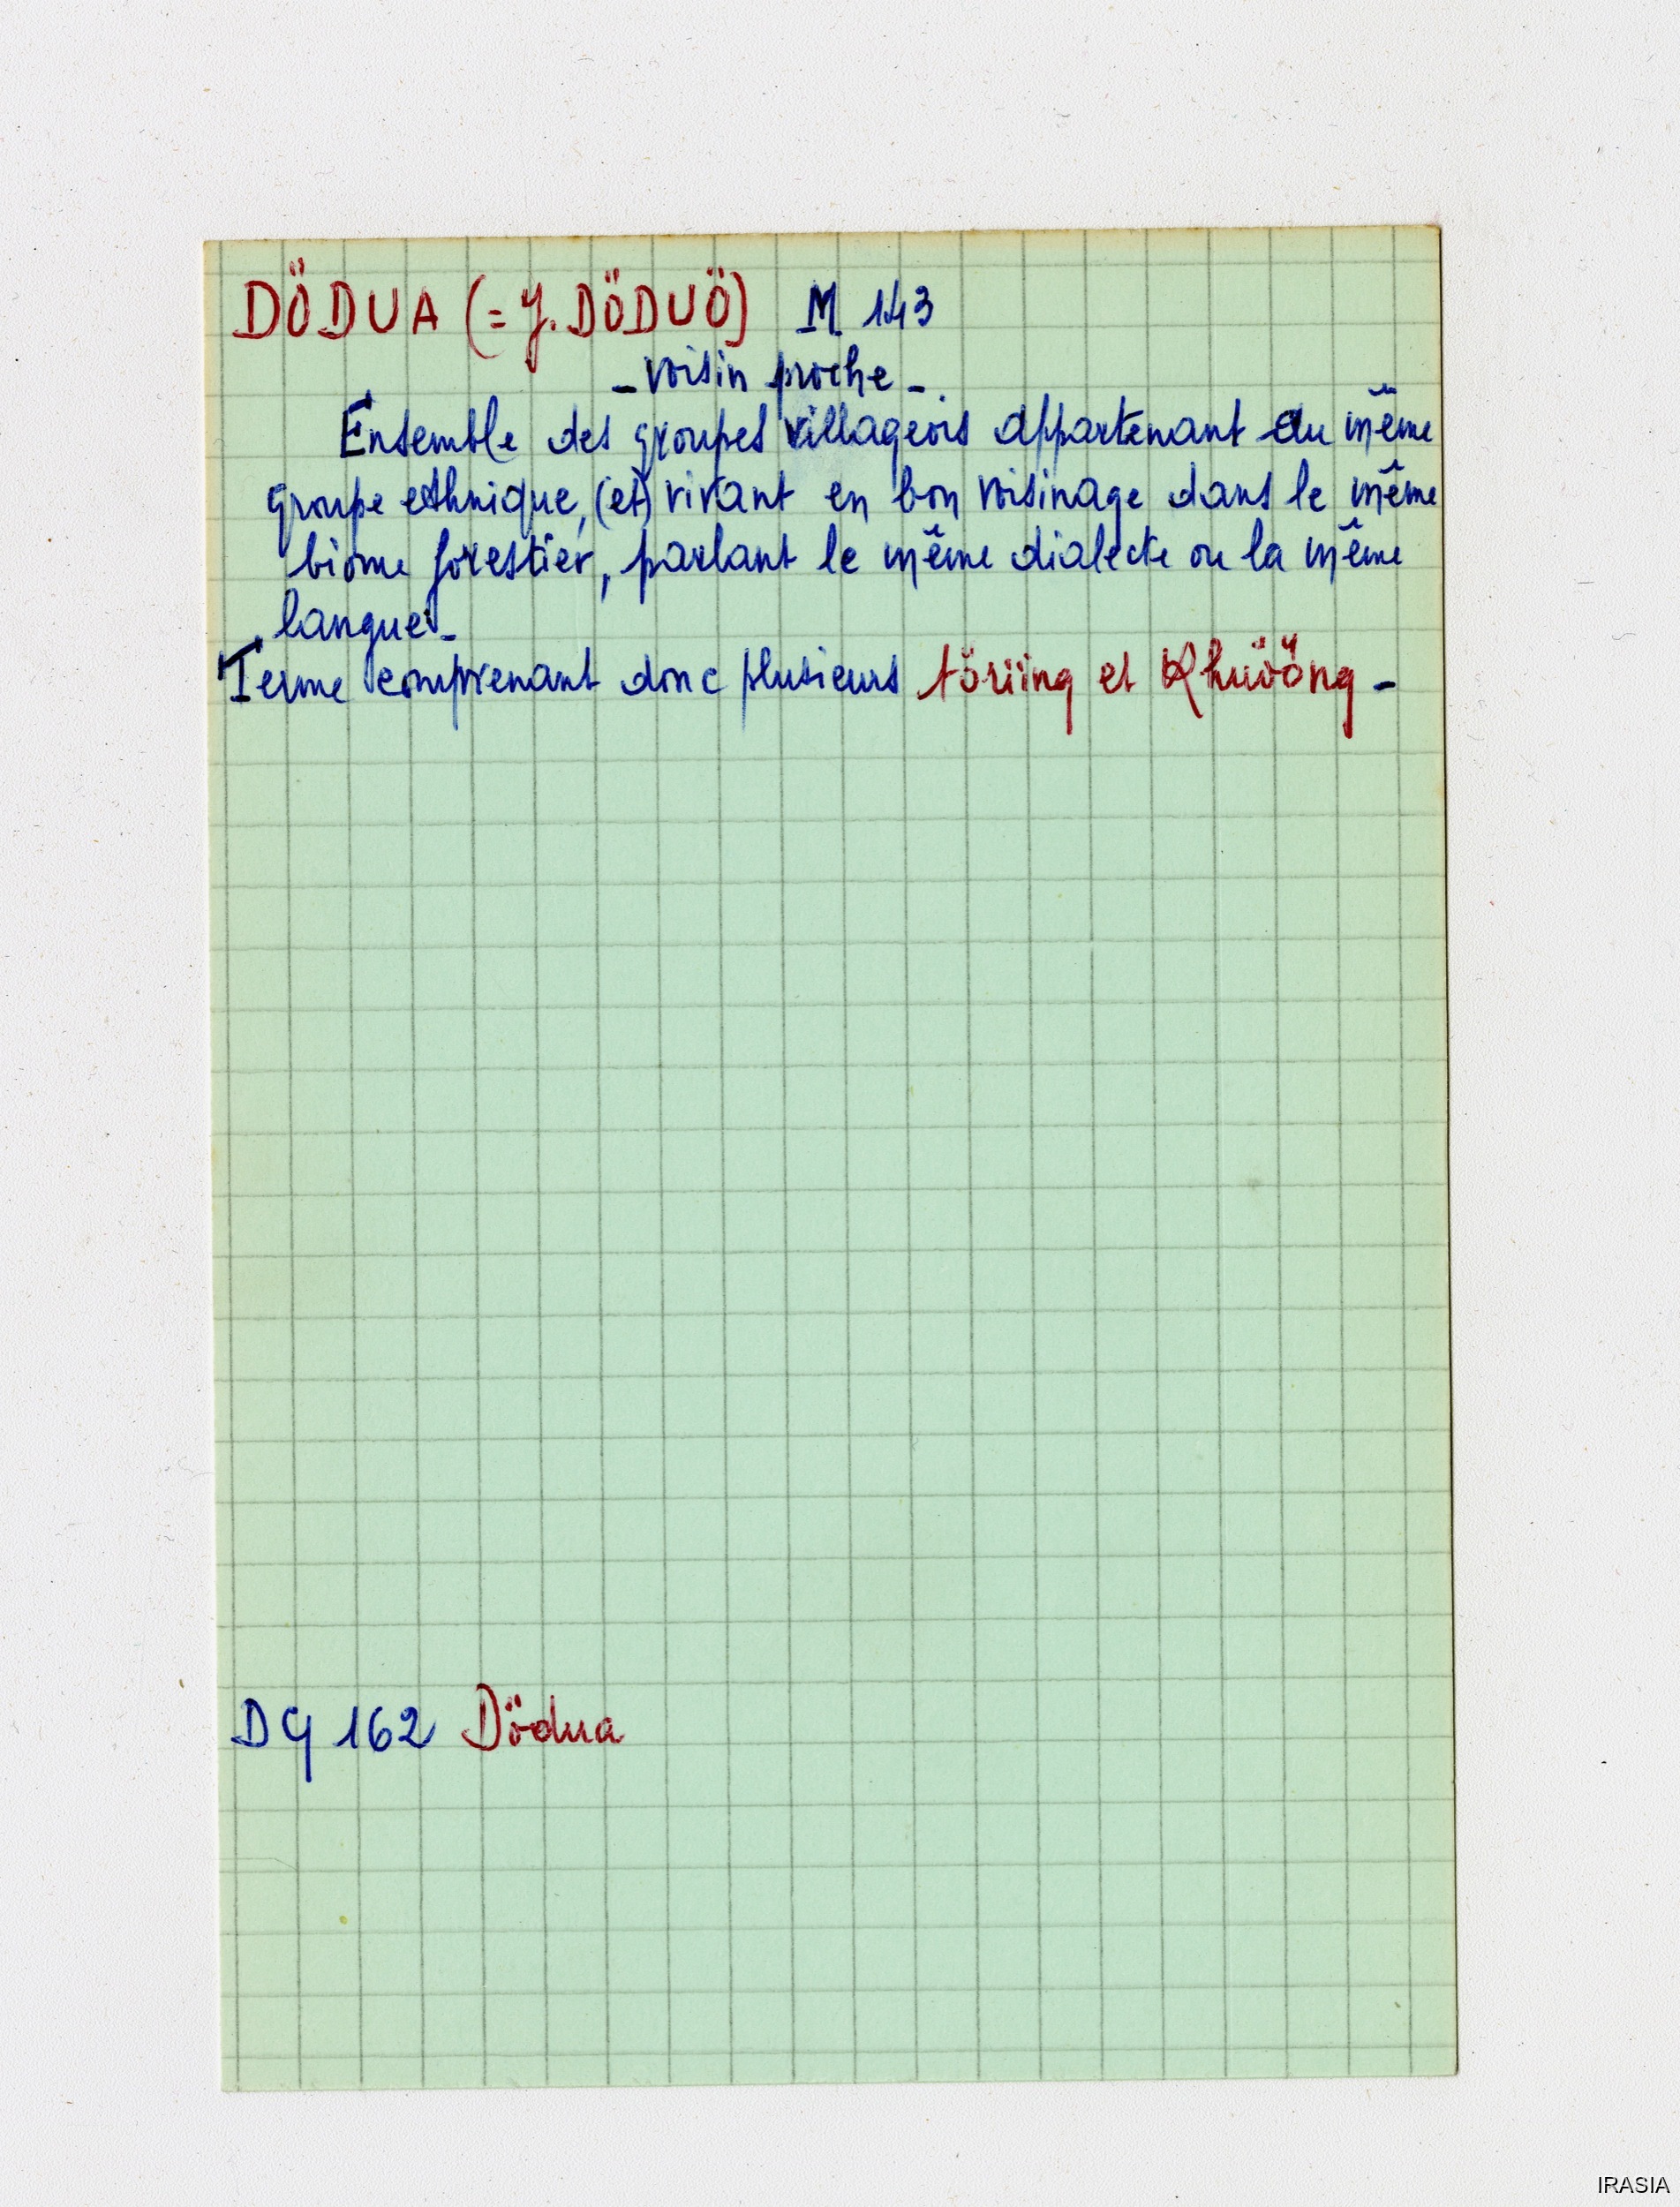 DÖDUA (= J. DÖDUÖ) M 143
- voisin proche -
Ensemble des groupes villageois appartenant au même
groupe ethnique, (et) vivant en bon voisinage dans le même
biome forestier, parlant le même dialecte ou la même
langue -
Terme comprenant donc plusieurs töriing et
DG 162 Dödua
IRASIA